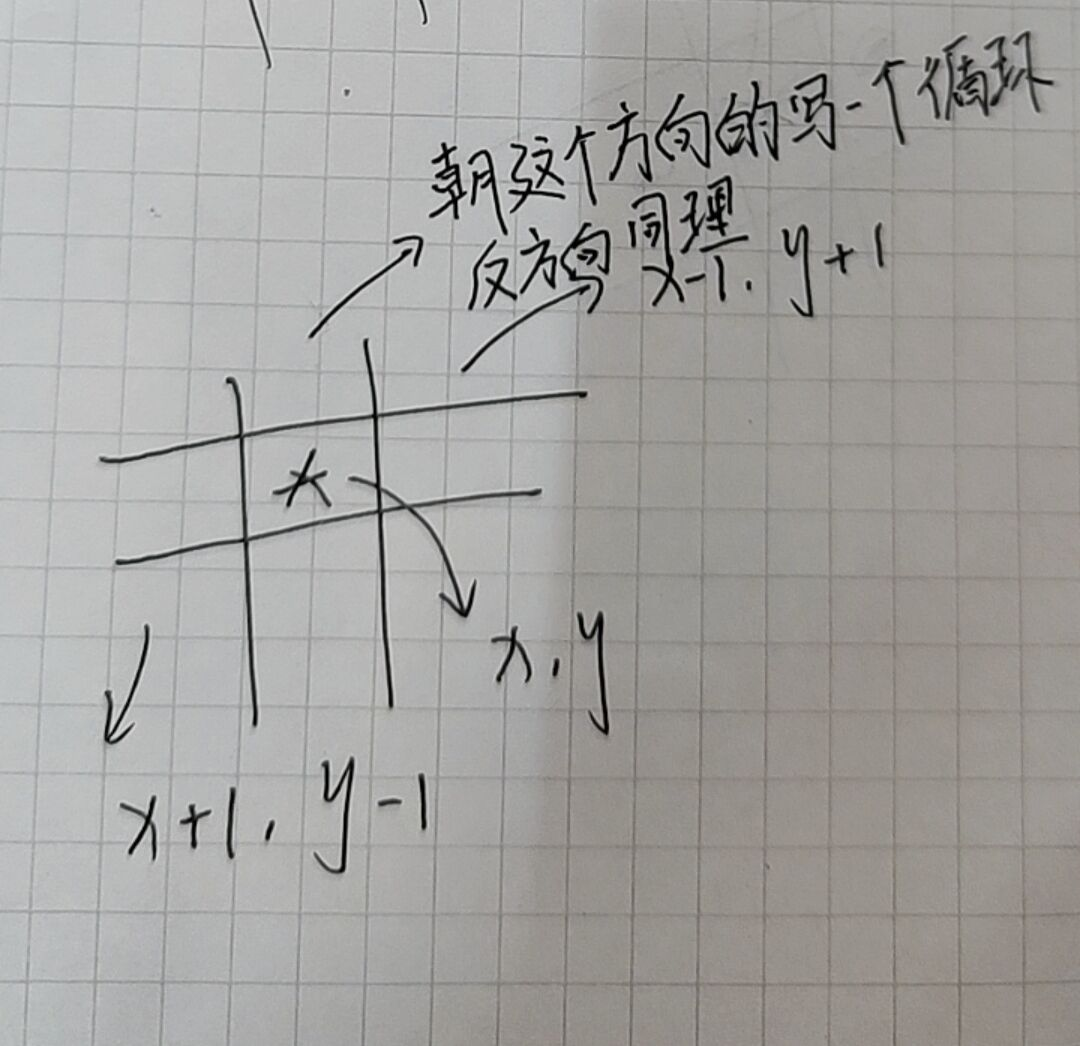 朝这个方向的写一个循环
反方向同理
x-1, y+1
x, y
x+1, y-1